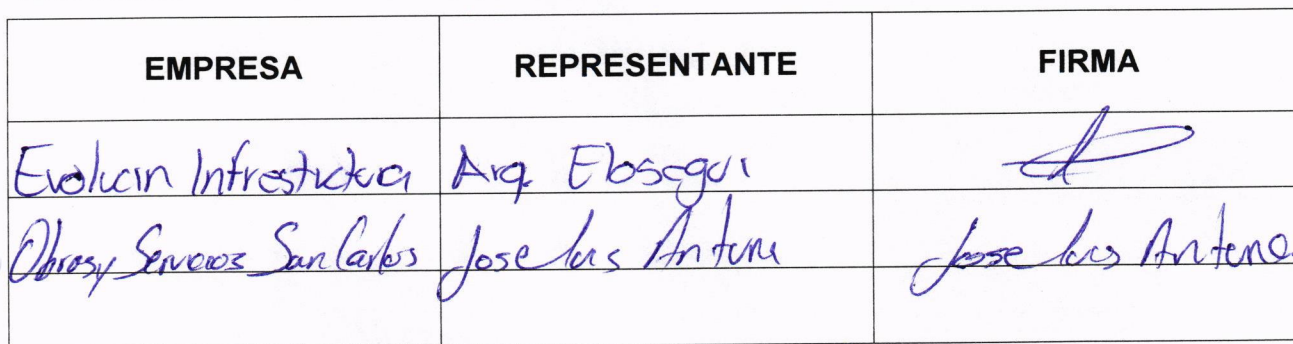 EMPRESA REPRESENTANTE FIRMA
Evolucin Infrestructura Arq. Elosegui
Obras y Servicios San Carlos Jose luis Antuna Jose luis Antuna